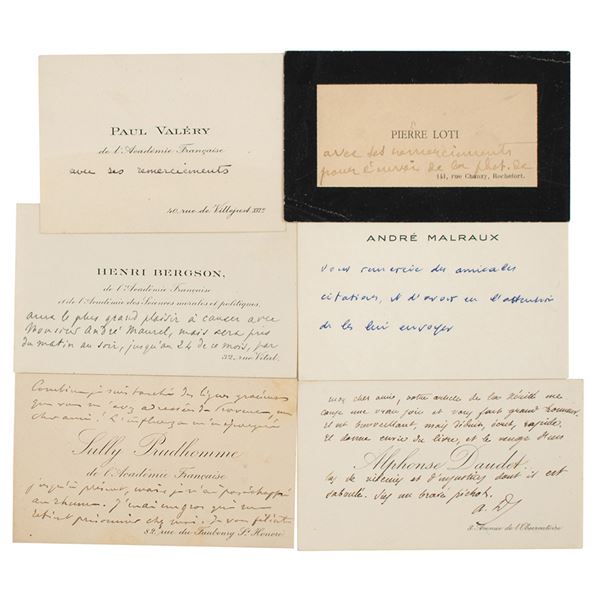 PAUL VALÉRY
de l'Académie Française
avec ses remerciements
40, rue de Villejust. XVIe
PIERRE LOTI
avec ses remerciements
pour l'envoi de la phot. de
141, rue Chanzy, Rochefort.
HENRI BERGSON,
de l'Académie Française
et de l'Académie des Sciences morales et politiques,
aura le plus grand plaisir à causer avec
Monsieur André Maurel, mais sera pris
du matin au soir, jusqu'au 24 de ce mois, par
32, rue Vital.
ANDRÉ MALRAUX
vous remercie des amicales
citations, et d'avoir eu l'attention
de les lui envoyer
Combien je suis touché des lignes gracieuses
que vous m'avez adressées de
cher ami! L'influenza m'a épargné
Sully Prudhomme
de l'Académie Française
jusqu'à présent, mais je n'ai pas échappé
au rhume. J'ai
retient prisonnier chez moi. Je vous félicite
82, rue du Faubourg St Honoré
mon cher ami, votre article de la
cause une vraie joie et very fort grand honneur.
Il est bienveillant, mais
Il donne envie du livre, et le venge
Alphonse Daudet
de vilenies et d'injustices dont il est
saboulé.
A. D
3, Avenue de l'Observatoire